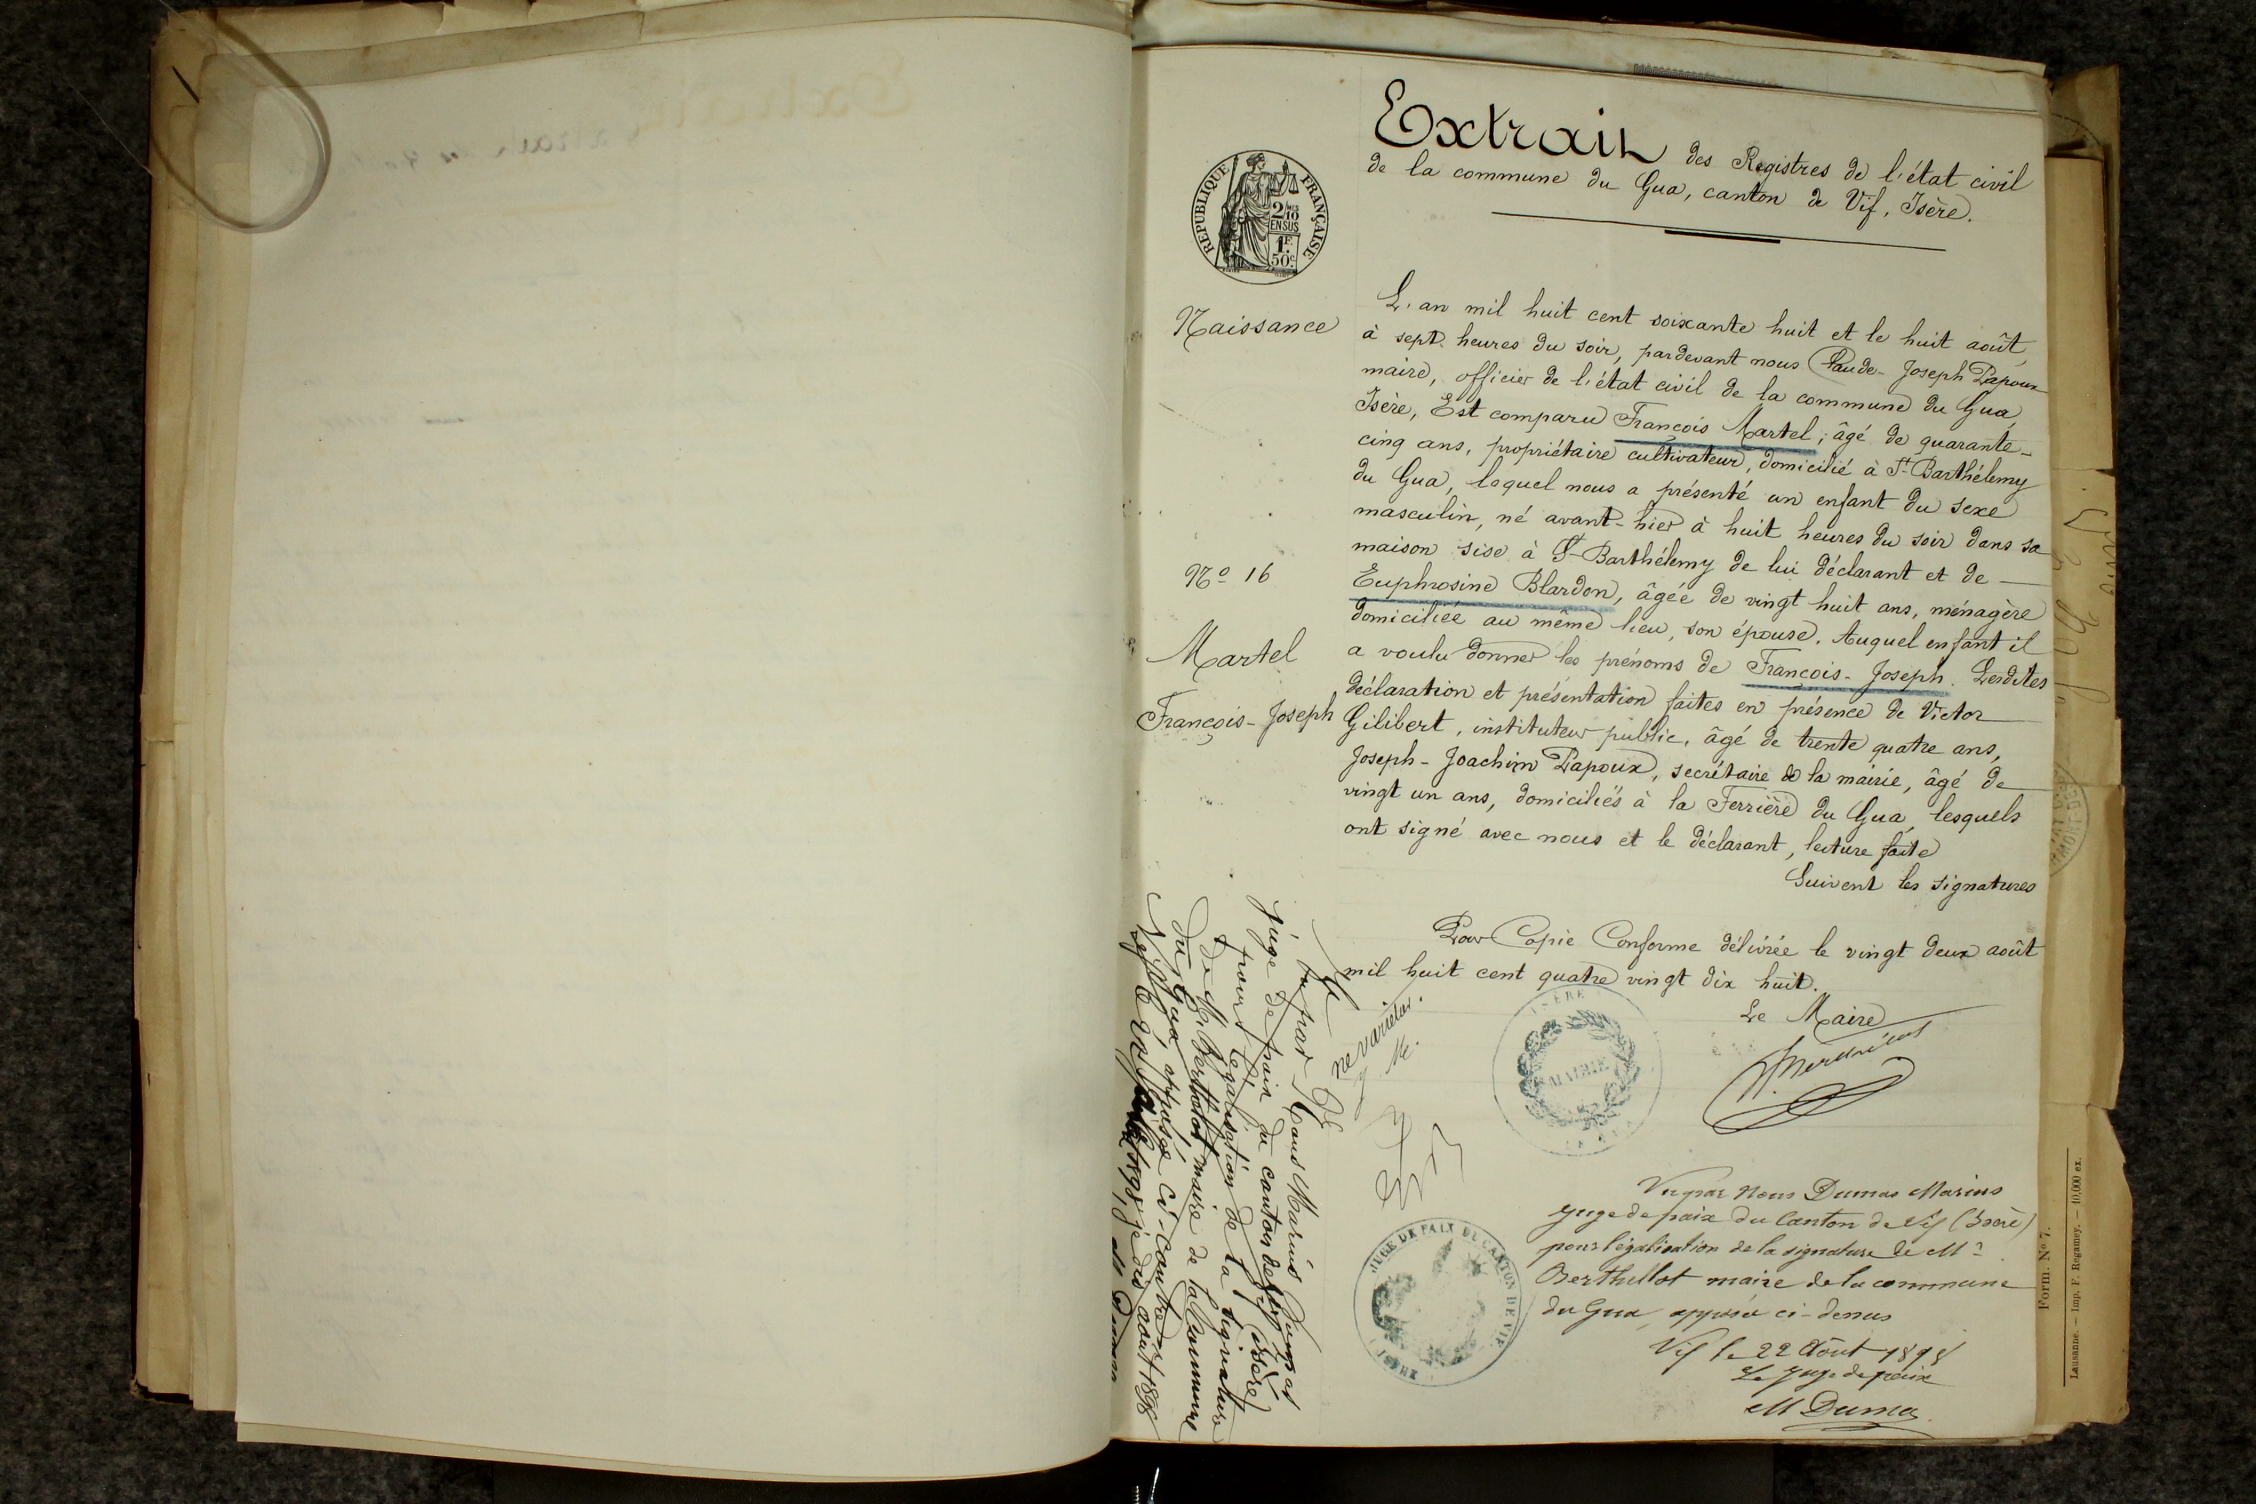 Extrait des Registres de l'état civil
de la commune du Gua, canton de Vif, Isère.
RÉPUBLIQUE FRANÇAISE
2/10
EN SUS
1F.
50c.
Naissance
L'an mil huit cent soixante huit et le huit août,
à sept heures du soir, pardevant nous Claude-Joseph Papoux
maire, officier de l'état civil de la commune du Gua,
Isère, Est comparu François Martel, âgé de quarante-
cinq ans, propriétaire cultivateur, domicilié à St Barthélemy
du Gua, lequel nous a présenté un enfant du sexe
masculin, né avant-hier à huit heures du soir dans sa
maison sise à St-Barthélemy de lui déclarant et de
No 16
Euphrosine Blardon, âgée de vingt huit ans, ménagère
domiciliée au même lieu, son épouse. Auquel enfant il
Martel
a voulu donner les prénoms de François-Joseph. Lesdites
déclaration et présentation faites en présence de Victor
François-Joseph
Gilibert, instituteur public, âgé de trente quatre ans,
Joseph-Joachim Papoux, secrétaire de la mairie, âgé de
vingt un ans, domiciliés à la Ferrière du Gua, lesquels
ont signé avec nous et le déclarant, lecture faite
Suivent les signatures
Pour Copie Conforme délivrée le vingt deux août
mil huit cent quatre vingt dix huit.
Le Maire
ISÈRE
MAIRIE
ne varietur.
Vu par Nous Dumas Marius
Juge de paix du Canton de Vif (Isère)
pour légalisation de la signature de Mr
Berthellot maire de la commune
du Gua, apposée ci-dessus
Vif le 22 Août 1898
Le Juge de paix
M Dumas
JUGE DE PAIX DU CANTON DE VIF
(ISÈRE)
Vu par Nous Marius Dumas
juge de paix du canton de Vif (Isère)
pour légalisation de la signature
de Mr Berthelot maire de la Commune
du Gua apposée ci-contre
Vif le août 1898
M Dumas
Form. No 7.
Lausanne. — Imp. F. Regamey. — 10,000 ex.